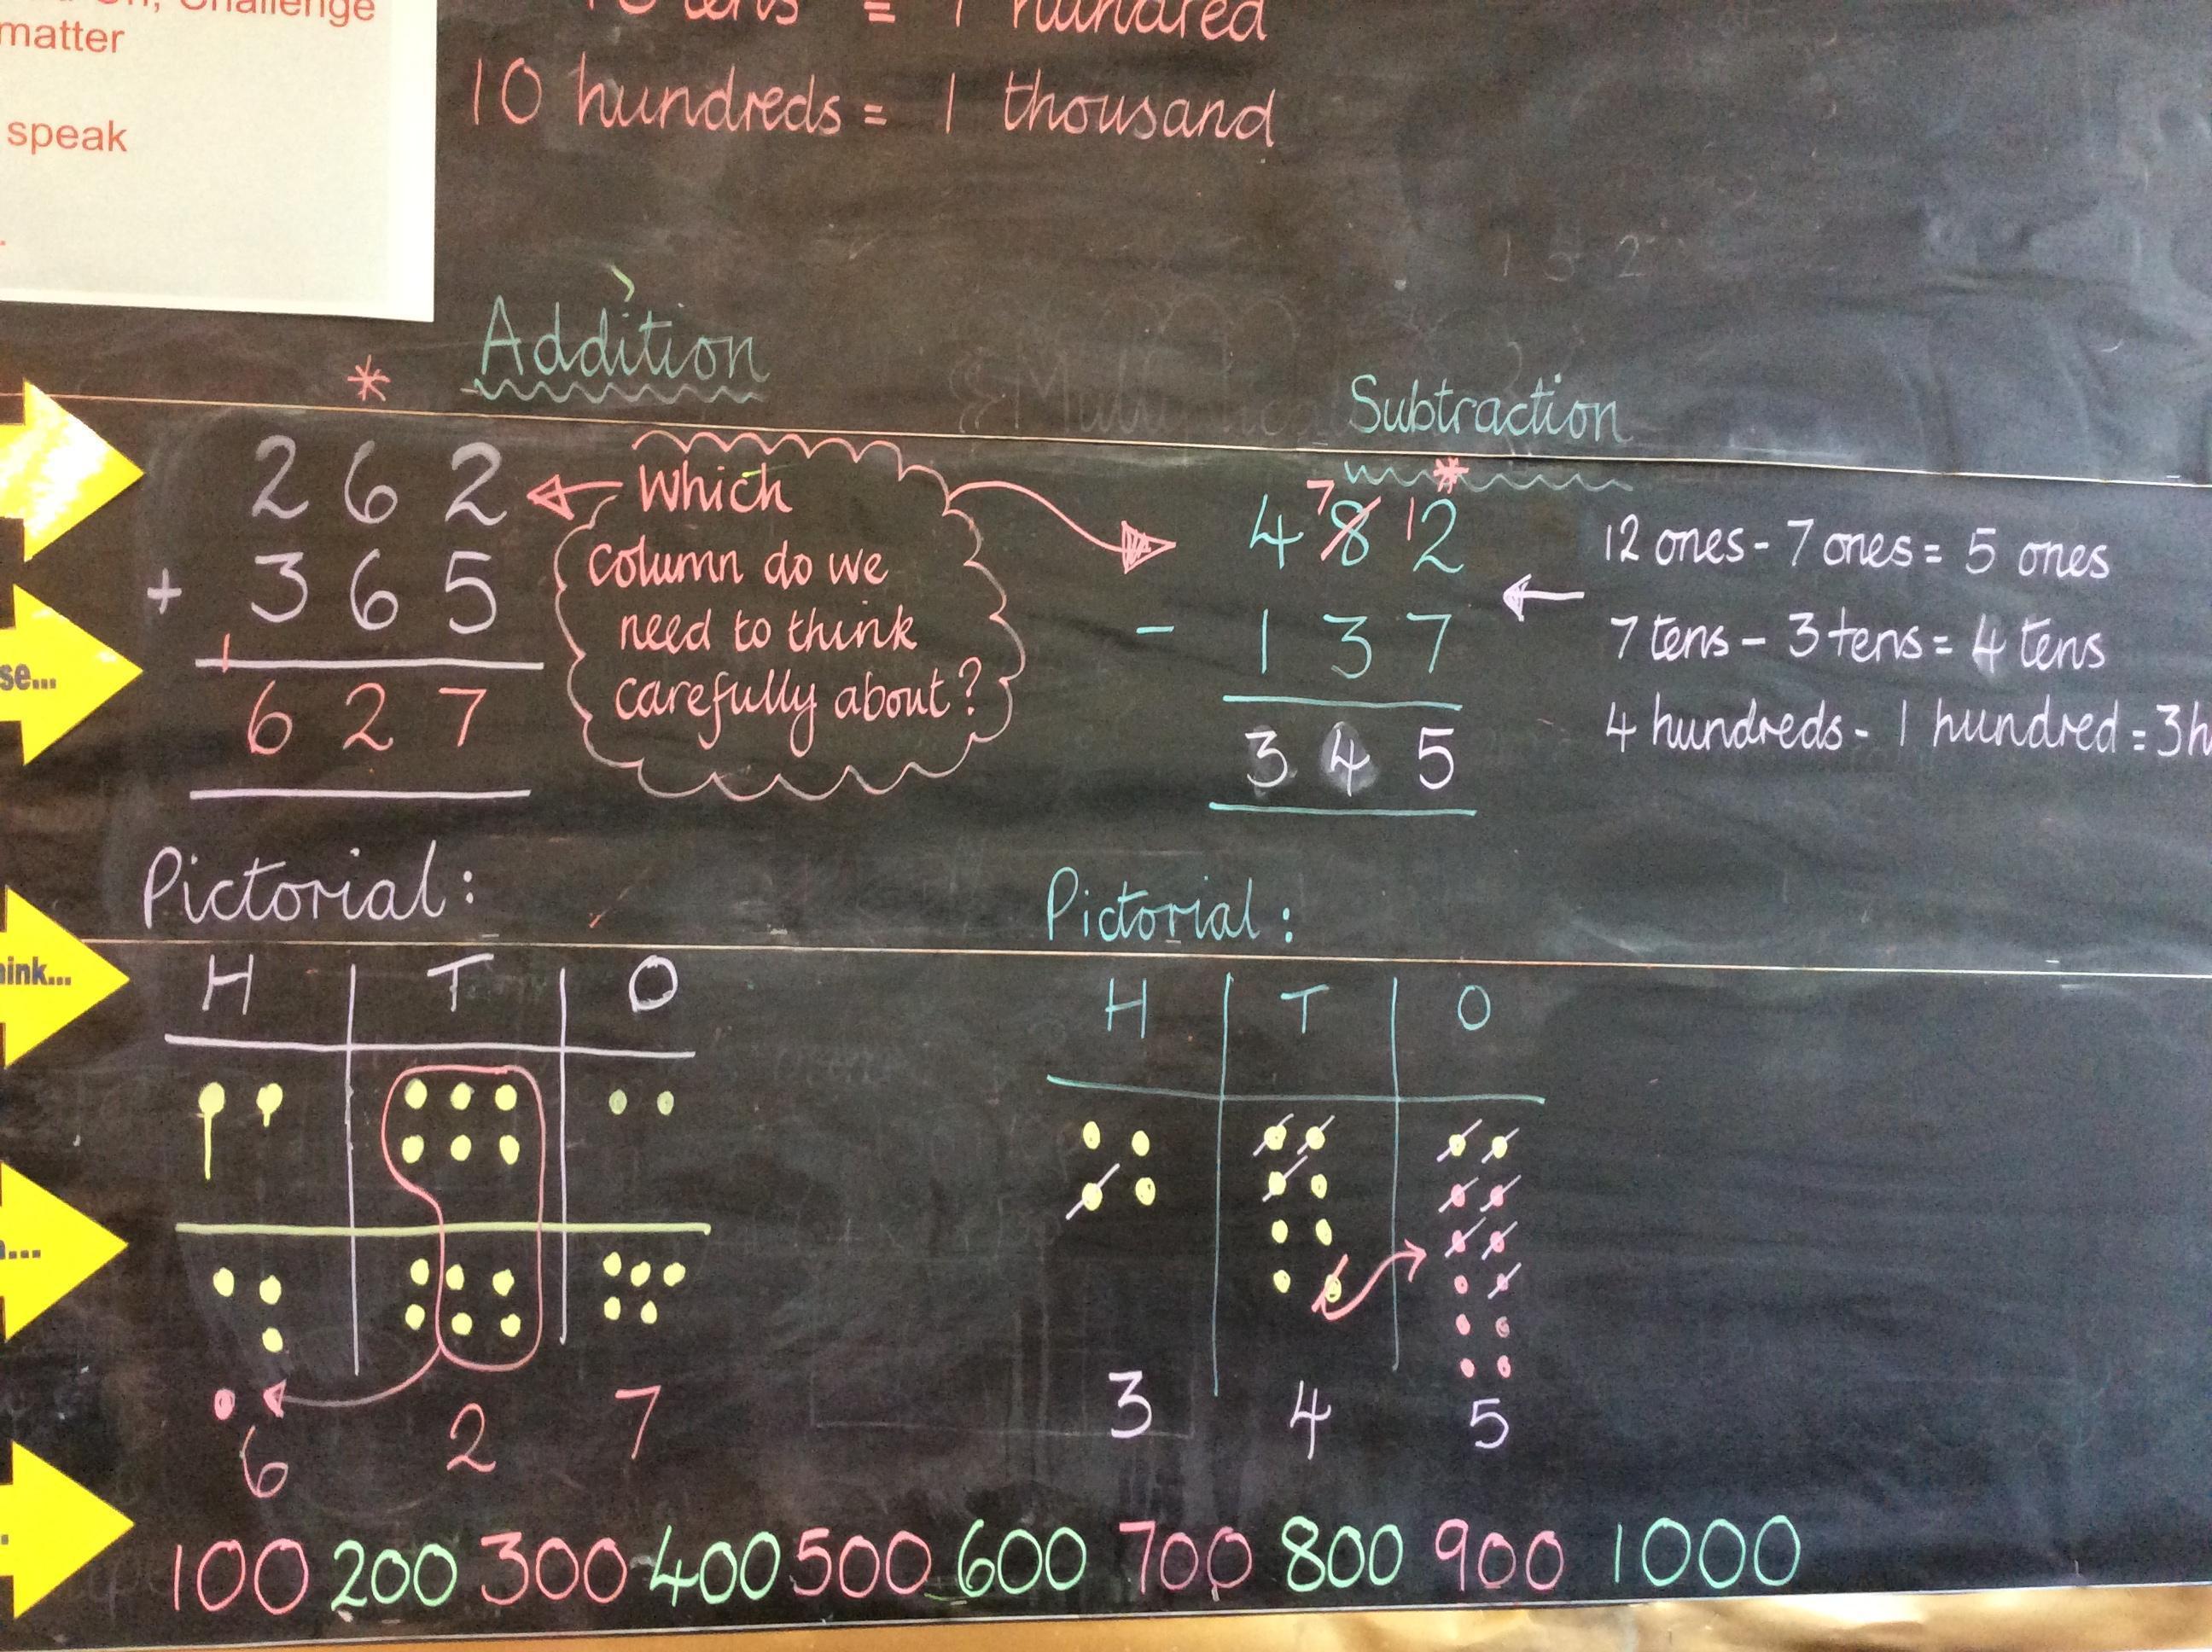 Challenge
matter
speak
tens = 1 hundred
10 hundreds = 1 thousand
Addition
*
262
+ 365
1
627
Which
column do we
need to think
carefully about?
Subtraction
*
7 1
482
- 137
345
12 ones - 7 ones = 5 ones
7 tens - 3 tens = 4 tens
4 hundreds - 1 hundred = 3h
se...
ink...
...
Pictorial:
H T O
6 2 7
Pictorial:
H T O
3 4 5
100 200 300 400 500 600 700 800 900 1000